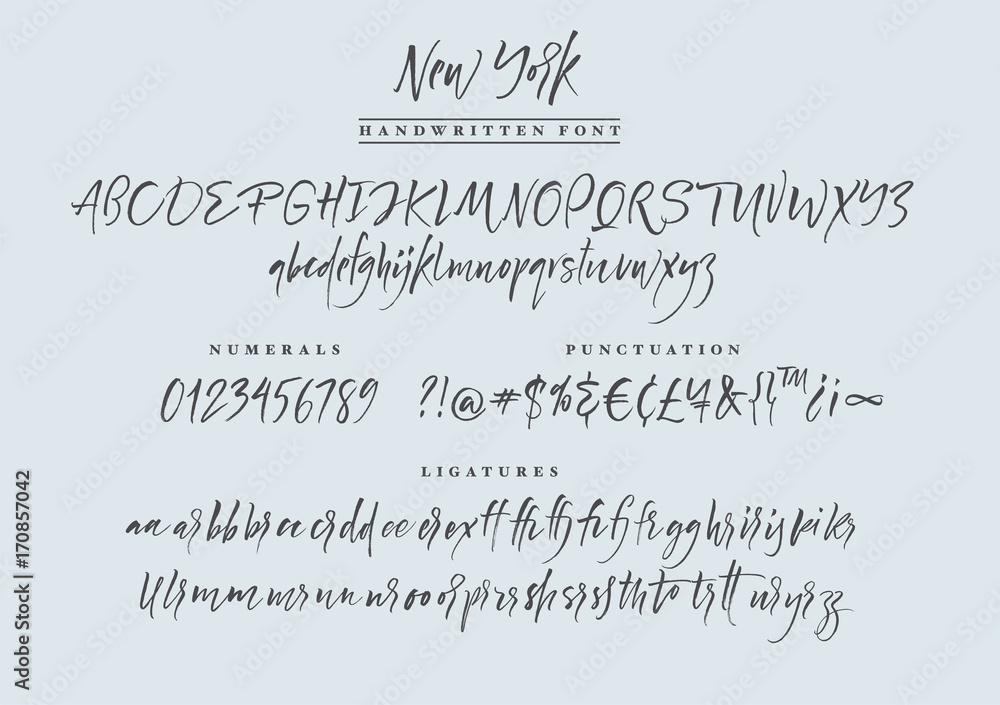 New York
HANDWRITTEN FONT
ABCDEFGHIJKLMNOPQRSTUVWXYZ
abcdefghijklmnopqrstuvwxyz
NUMERALS
PUNCTUATION
0123456789
?!@#$%&€¢£¥&{}™¿¡∞
LIGATURES
aa ar bb br cc cr dd ee er ex ff ffi ffj fi fj fr gg hr ir is pi kr
ll rr mm mr nn nr oo or pr rr sh sr ss th to tr tt ur yr zz
Adobe Stock | #170857042